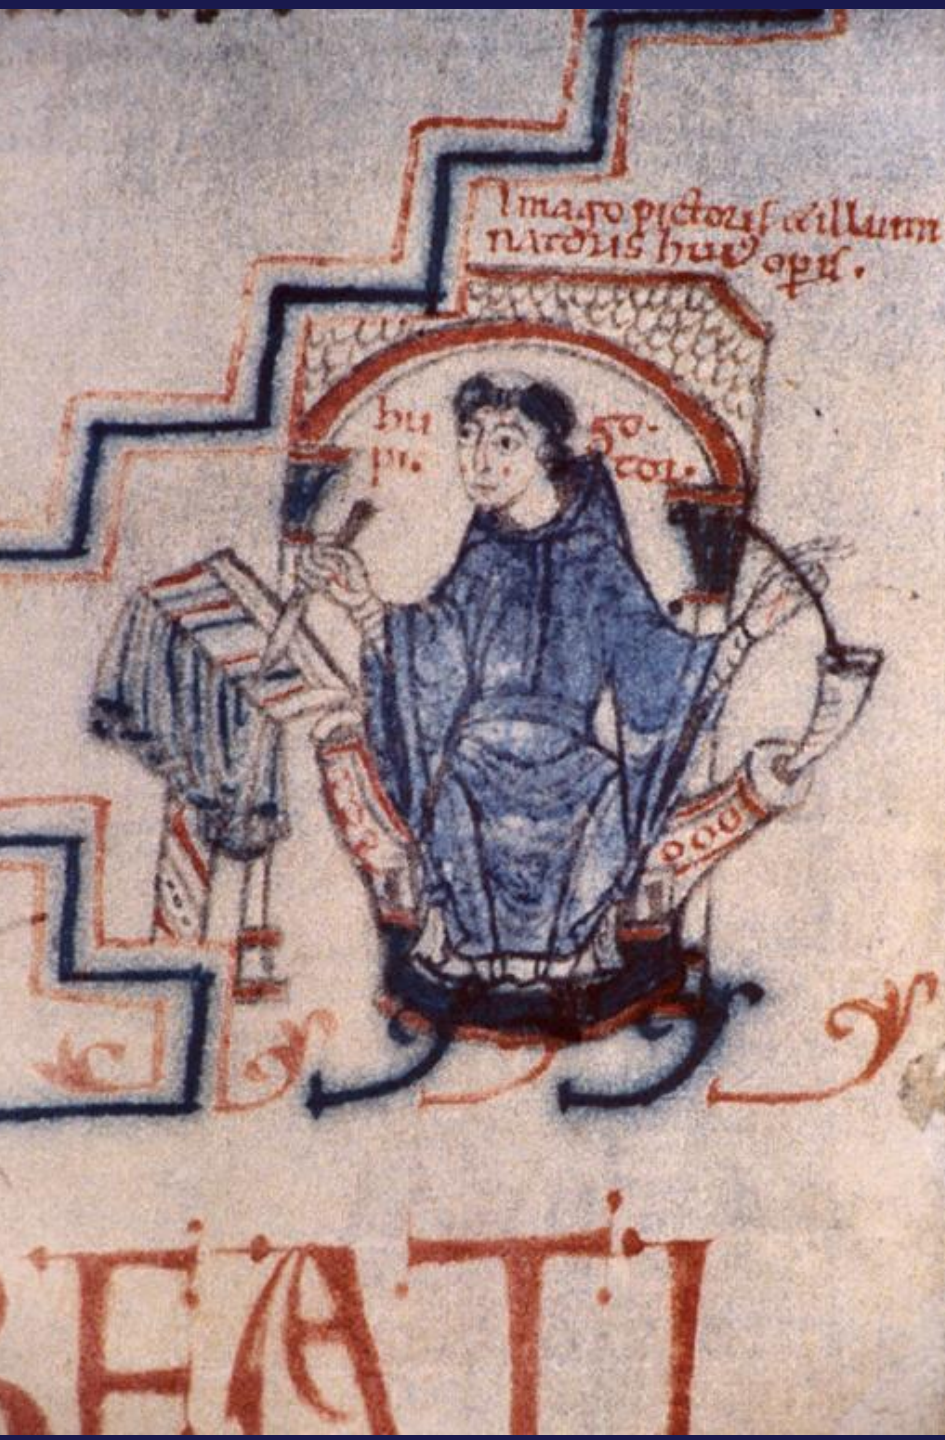 Imago pictoris & illumi
natoris huiꝰ opis.
hu go.
pi. ctor.
BEATI